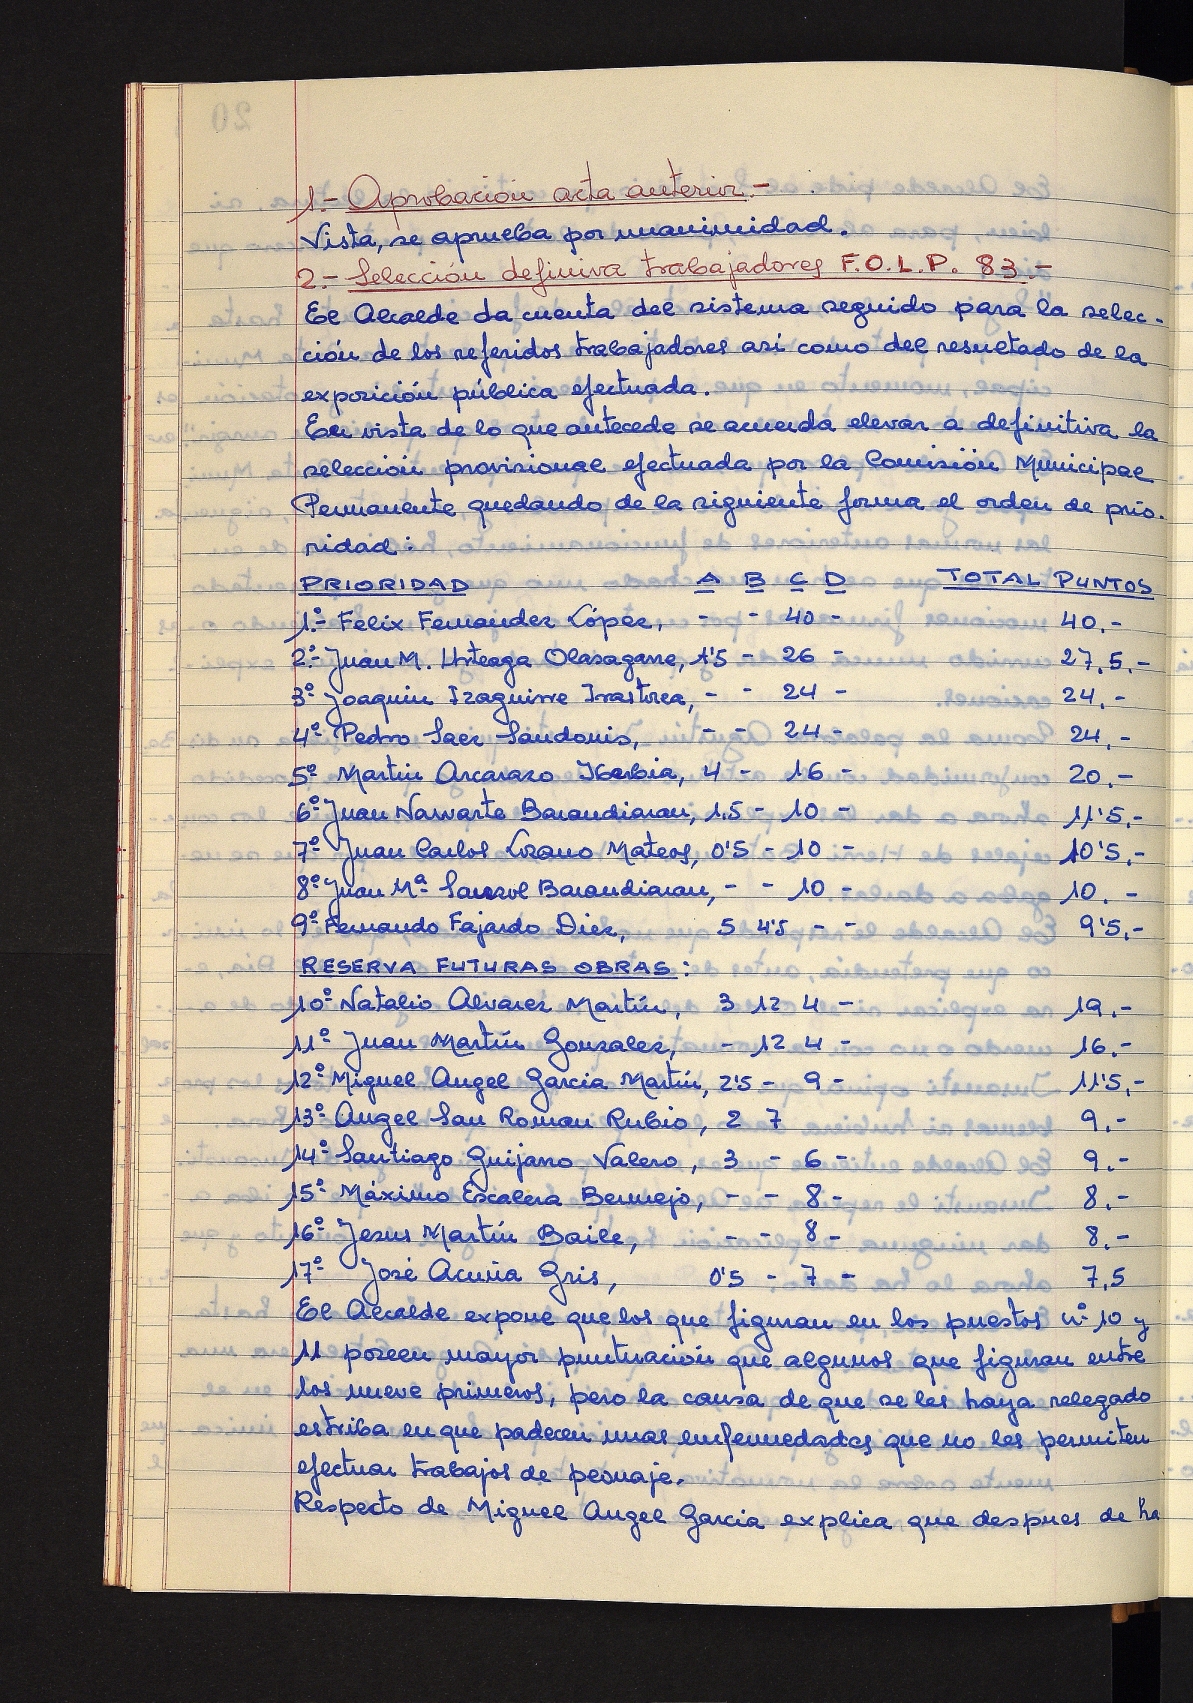 1.- Aprobación acta anterior.-
Vista, se aprueba por unanimidad.
2.- Selección definiva trabajadores F.O.L.P. 83.-
El Alcalde da cuenta del sistema seguido para la selec-
ción de los referidos trabajadores asi como del resultado de la
exposición pública efectuada.
En vista de lo que antecede se acuerda elevar a definitiva la
selección provisional efectuada por la Comisión Municipal
Permanente quedando de la siguiente forma el orden de prio-
ridad:
PRIORIDAD A B C D TOTAL PUNTOS
1º.- Felix Fernandez López, - - 40 - 40.-
2º.- Juan M. Urteaga Olasagarre, 1'5 - 26 - 27,5.-
3º Joaquin Izaguirre Irastorza, - - 24 - 24.-
4º Pedro Saez Sandonis, - - 24 - 24.-
5º Martin Arcaraso Iberbia, 4 - 16 - 20.-
6º Juan Narvarte Barandiaran, 1,5 - 10 - 11'5.-
7º Juan Carlos Lozano Mateos, 0'5 - 10 - 10'5.-
8º Juan Mª Sansol Barandiaran, - - 10 - 10.-
9º Fernando Fajardo Diez, 5 4'5 - - 9'5.-
RESERVA FUTURAS OBRAS:
10º Natalio Alvarez Martín, 3 12 4 - 19.-
11º Juan Martín Gonzalez, - 12 4 - 16.-
12º Miguel Angel Garcia Martín, 2'5 - 9 - 11'5.-
13º Angel San Roman Rubio, 2 7 9.-
14º Santiago Guijarro Valero, 3 - 6 - 9.-
15º Máximo Escalera Bermejo, - - 8 - 8.-
16º Jesus Martín Baile, - - 8 - 8.-
17º José Acuña Gris, 0'5 - 7 - 7,5
El Alcalde expone que los que figuran en los puestos nº 10 y
11 poseen mayor puntuación que algunos que figuran entre
los nueve primeros, pero la causa de que se les haya relegado
estriba en que padecen unas enfermedades que no les permiten
efectuar trabajos de peonaje.
Respecto de Miguel Angel Garcia explica que despues de ha